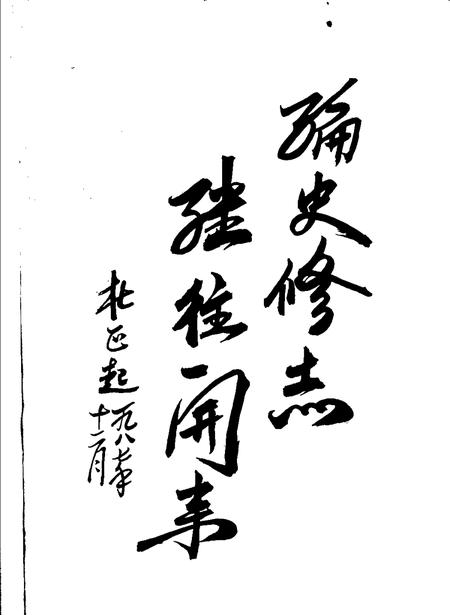 编史修志
继往开来
杜正起 一九八七年
十一月